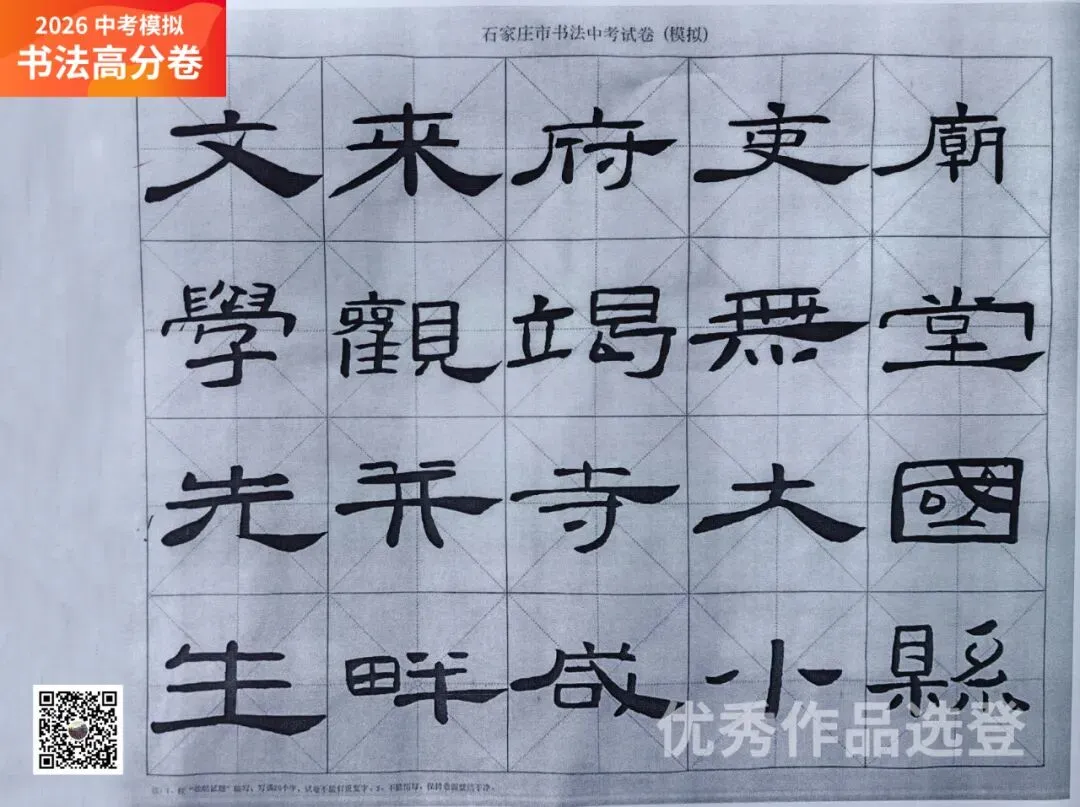 2026 中考模拟
书法高分卷
石家庄市书法中考试卷（模拟）
廟堂國縣
吏無大小
府竭寺咸
来觀并畔
文學先生
优秀作品选登